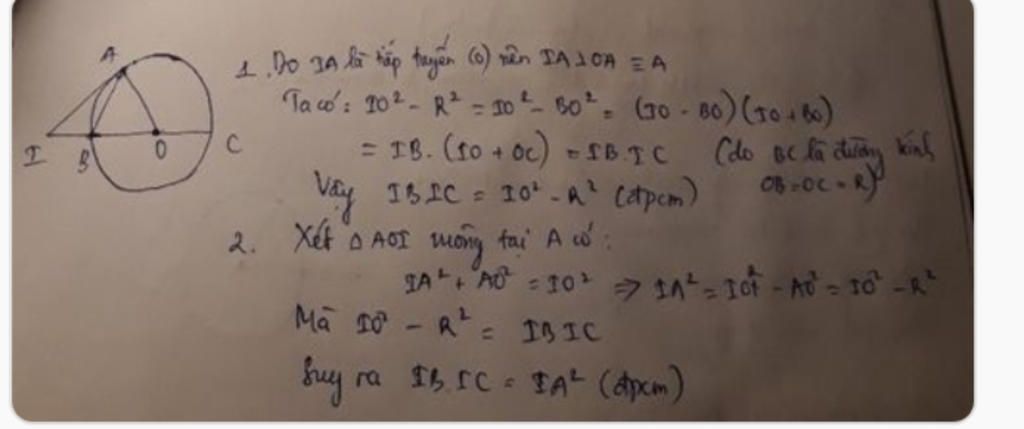 A
I
B
O
C
1. Do IA là tiếp tuyến (O) nên IA⊥OA ≡ A
Ta có: IO² - R² = IO² - BO² = (IO - BO)(IO + BO)
= IB. (IO + OC) = IB.IC (do BC là đường kính
OB = OC = R)
Vậy IB.IC = IO² - R² (đpcm)
2. Xét △ AOI vuông tại A có:
IA² + AO² = IO² ⇒ IA² = IO² - AO² = IO² - R²
Mà IO² - R² = IB IC
Suy ra IB.IC = IA² (đpcm)